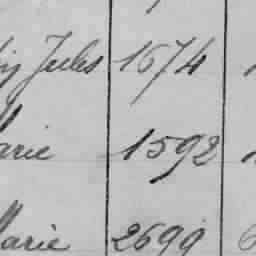 Jules 1674
Marie 1592
Marie 2699